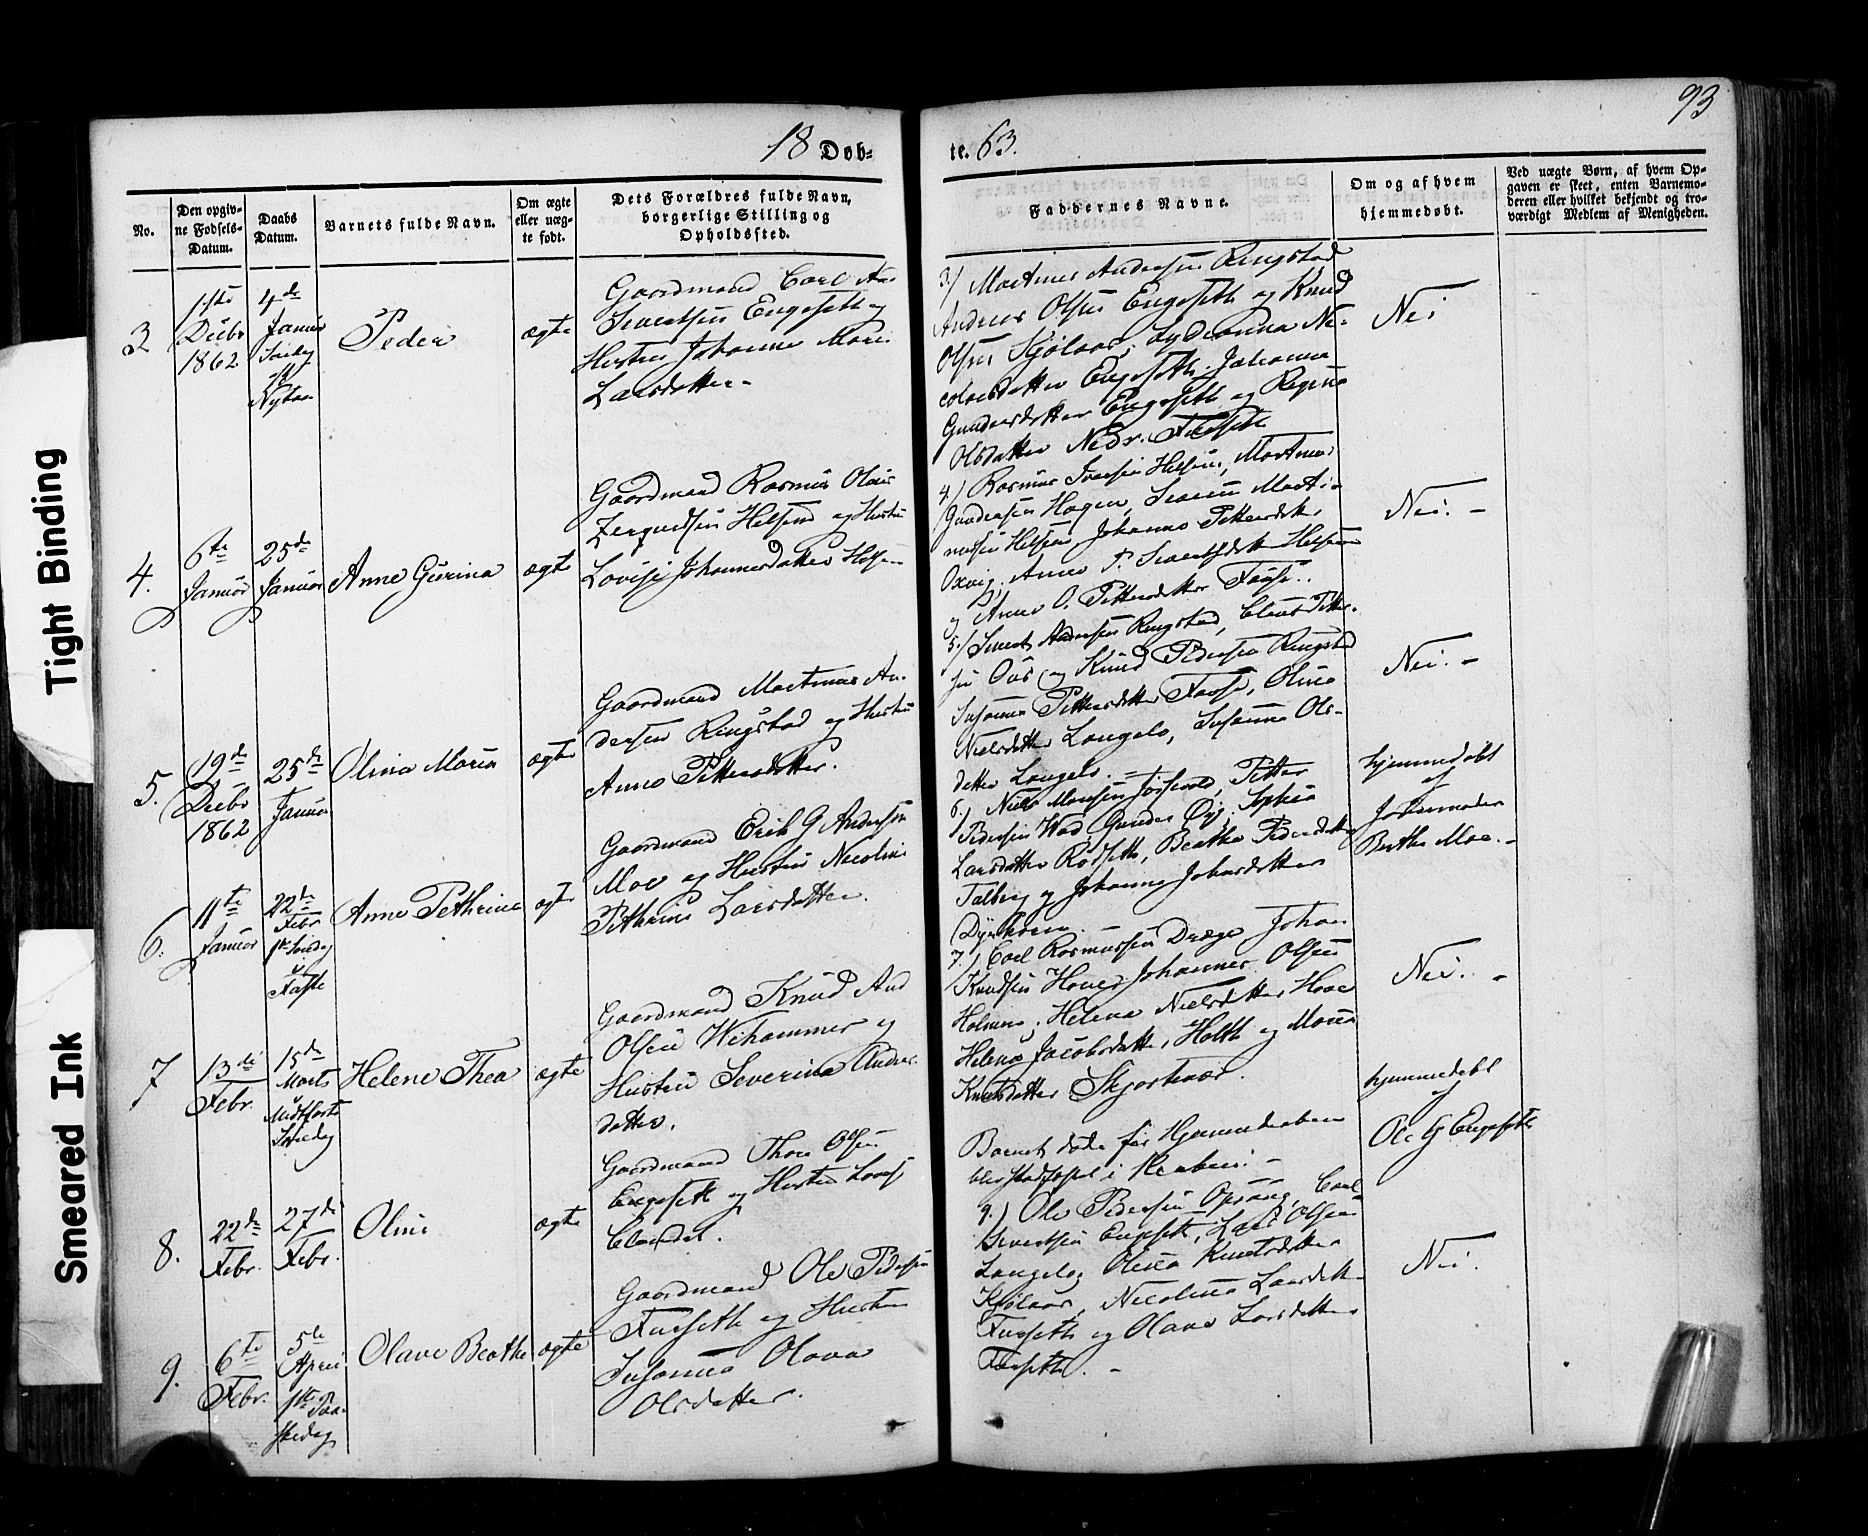 93
18 Døb-
te. 63.
No.
Den opgiv-
ne Fødsels-
Datum.
Daabs
Datum.
Barnets fulde Navn.
Om ægte
eller uæg-
te født.
Dets Forældres fulde Navn,
borgerlige Stilling og
Opholdssted.
Faddernes Navne.
Om og af hvem
hjemmedøbt.
Ved uægte Børn, af hvem Op-
gaven er skeet, enten Barnemo-
deren eller hvilket bekjendt og tro-
værdigt Medlem af Menigheden.
3
Decbr
1862
4de
Januar
Peder
ægte
Gaardmand Carl And
Sivertsen Engeseth og
Hustru Johanne Marie
Larsdatter
3.) Martinus Andersen Ringstad
Andreas Olsen Engeseth og Knud
Olsen Kjølaas, Lydianna Ni-
colaidatter Engeseth, Johanna
Gundersdatter Engeseth og Regine
Olsdatter Nedr. Furseth
Nei
4.
6te
Januar
25de
Januar
Anne Gurina
ægte
Gaardmand Rasmus Olaus
Helsem og Hustru
Lovise Johannesdatter Helsem
4.) Rasmus Iversen Helsem, Martinus
Hagen, Martin
Helsem Johanna Pettersdtr
Oxvig, Anne P. Helsem
og Anne O. Pettersdatter
Nei. -
5.
19de
Decbr
1862
25de
Januar
Olina Maria
ægte
Gaardmand Martinus An-
dersen Ringstad og Hustru
Anne Pettersdatter.
5.) Sivert Andersen Ringstad, Claus Petter-
sen Ous og Knud Pedersen Ringstad
Susanna Pettersdatter Olina
Nielsdatter Langelo, Susanna Ols-
datter Langelo. -
Nei. -
6.
11te
Januar
22de
Febr
1ste Søndag
i
Faste
Anne Pethrine
ægte
Gaardmand Erik G Andersen
Moe og Hustru Nicoline
Pethrine Larsdatter.
6.) Niels Petter
Pedersen Wad, Gunder Sophia
Larsdatter Rødseth, Beathe Pedersdatter
Talberg og Johanna Johansdatter
Dyrkorn. -
hjemmedøbt
af
Jordemoder
Berthe Moe. -
7
13de
Febr.
15de
Marts
Midtfaste
Søndag
Helene Thea
ægte
Gaardmand Knud And
Olsen Wihammer og
Hustru Severina Anders-
datter.
7.) Carl Rasmussen Drage Johan
Knudsen Johannes Olsen
Helena Nielsdatter
Helena Jacobsdatter, Holth og Maria
Knutsdatter
Nei. -
8.
22de
Febr.
27de
Febr.
Oline
ægte
Gaardmand Thore Olsen
Engeseth og Hustru
Barnet døde før
i Kirken. -
hjemmedøbt
af
Ole G Engeseth
9.
6te
Febr.
5te
April
1ste Paa-
skedag
Olave Beathe
ægte
Gaardmand Ole Pedersen
Fursseth og Hustru
Susanna Olava
Olsdatter.
9.) Ole Pedersen Carl
Sivertsen Engeseth, Lars Olsen
Langelo, Olina Knutsdatter
Kjølaas, Nicolina Larsdatter
Fursseth og Olava Larsdatter
Furseth. -
Nei.
Tight Binding
Smeared Ink